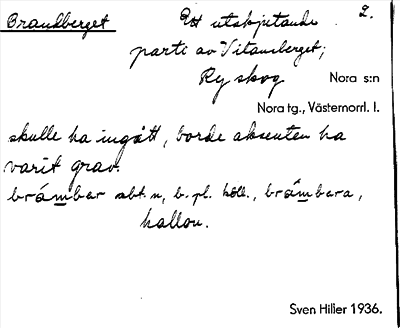 Brandberget Ett utskjutande 2.
parti av Vitansberget;
Ry skog Nora s:n
Nora tg., Västernorrl. l.
skulle ha ingått, borde aksenten ha
varit grav.
brámbar sbt. n, b. pl. koll., brámbara,
hallon.
Sven Hilier 1936.